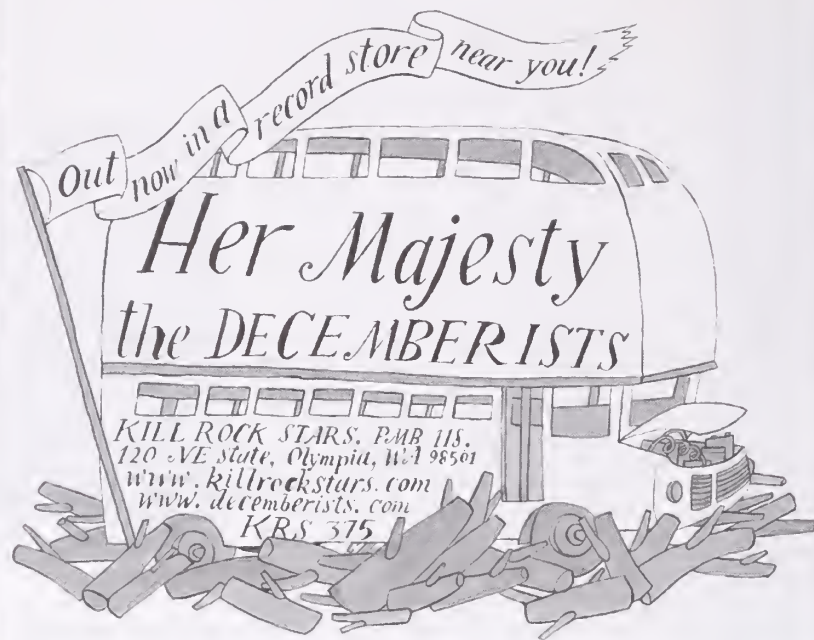 Out now in a record store near you!
Her Majesty
the DECEMBERISTS
KILL ROCK STARS. PMB 118.
120 NE State, Olympia, WA 98501
www.killrockstars.com
www.decemberists.com
KRS 375